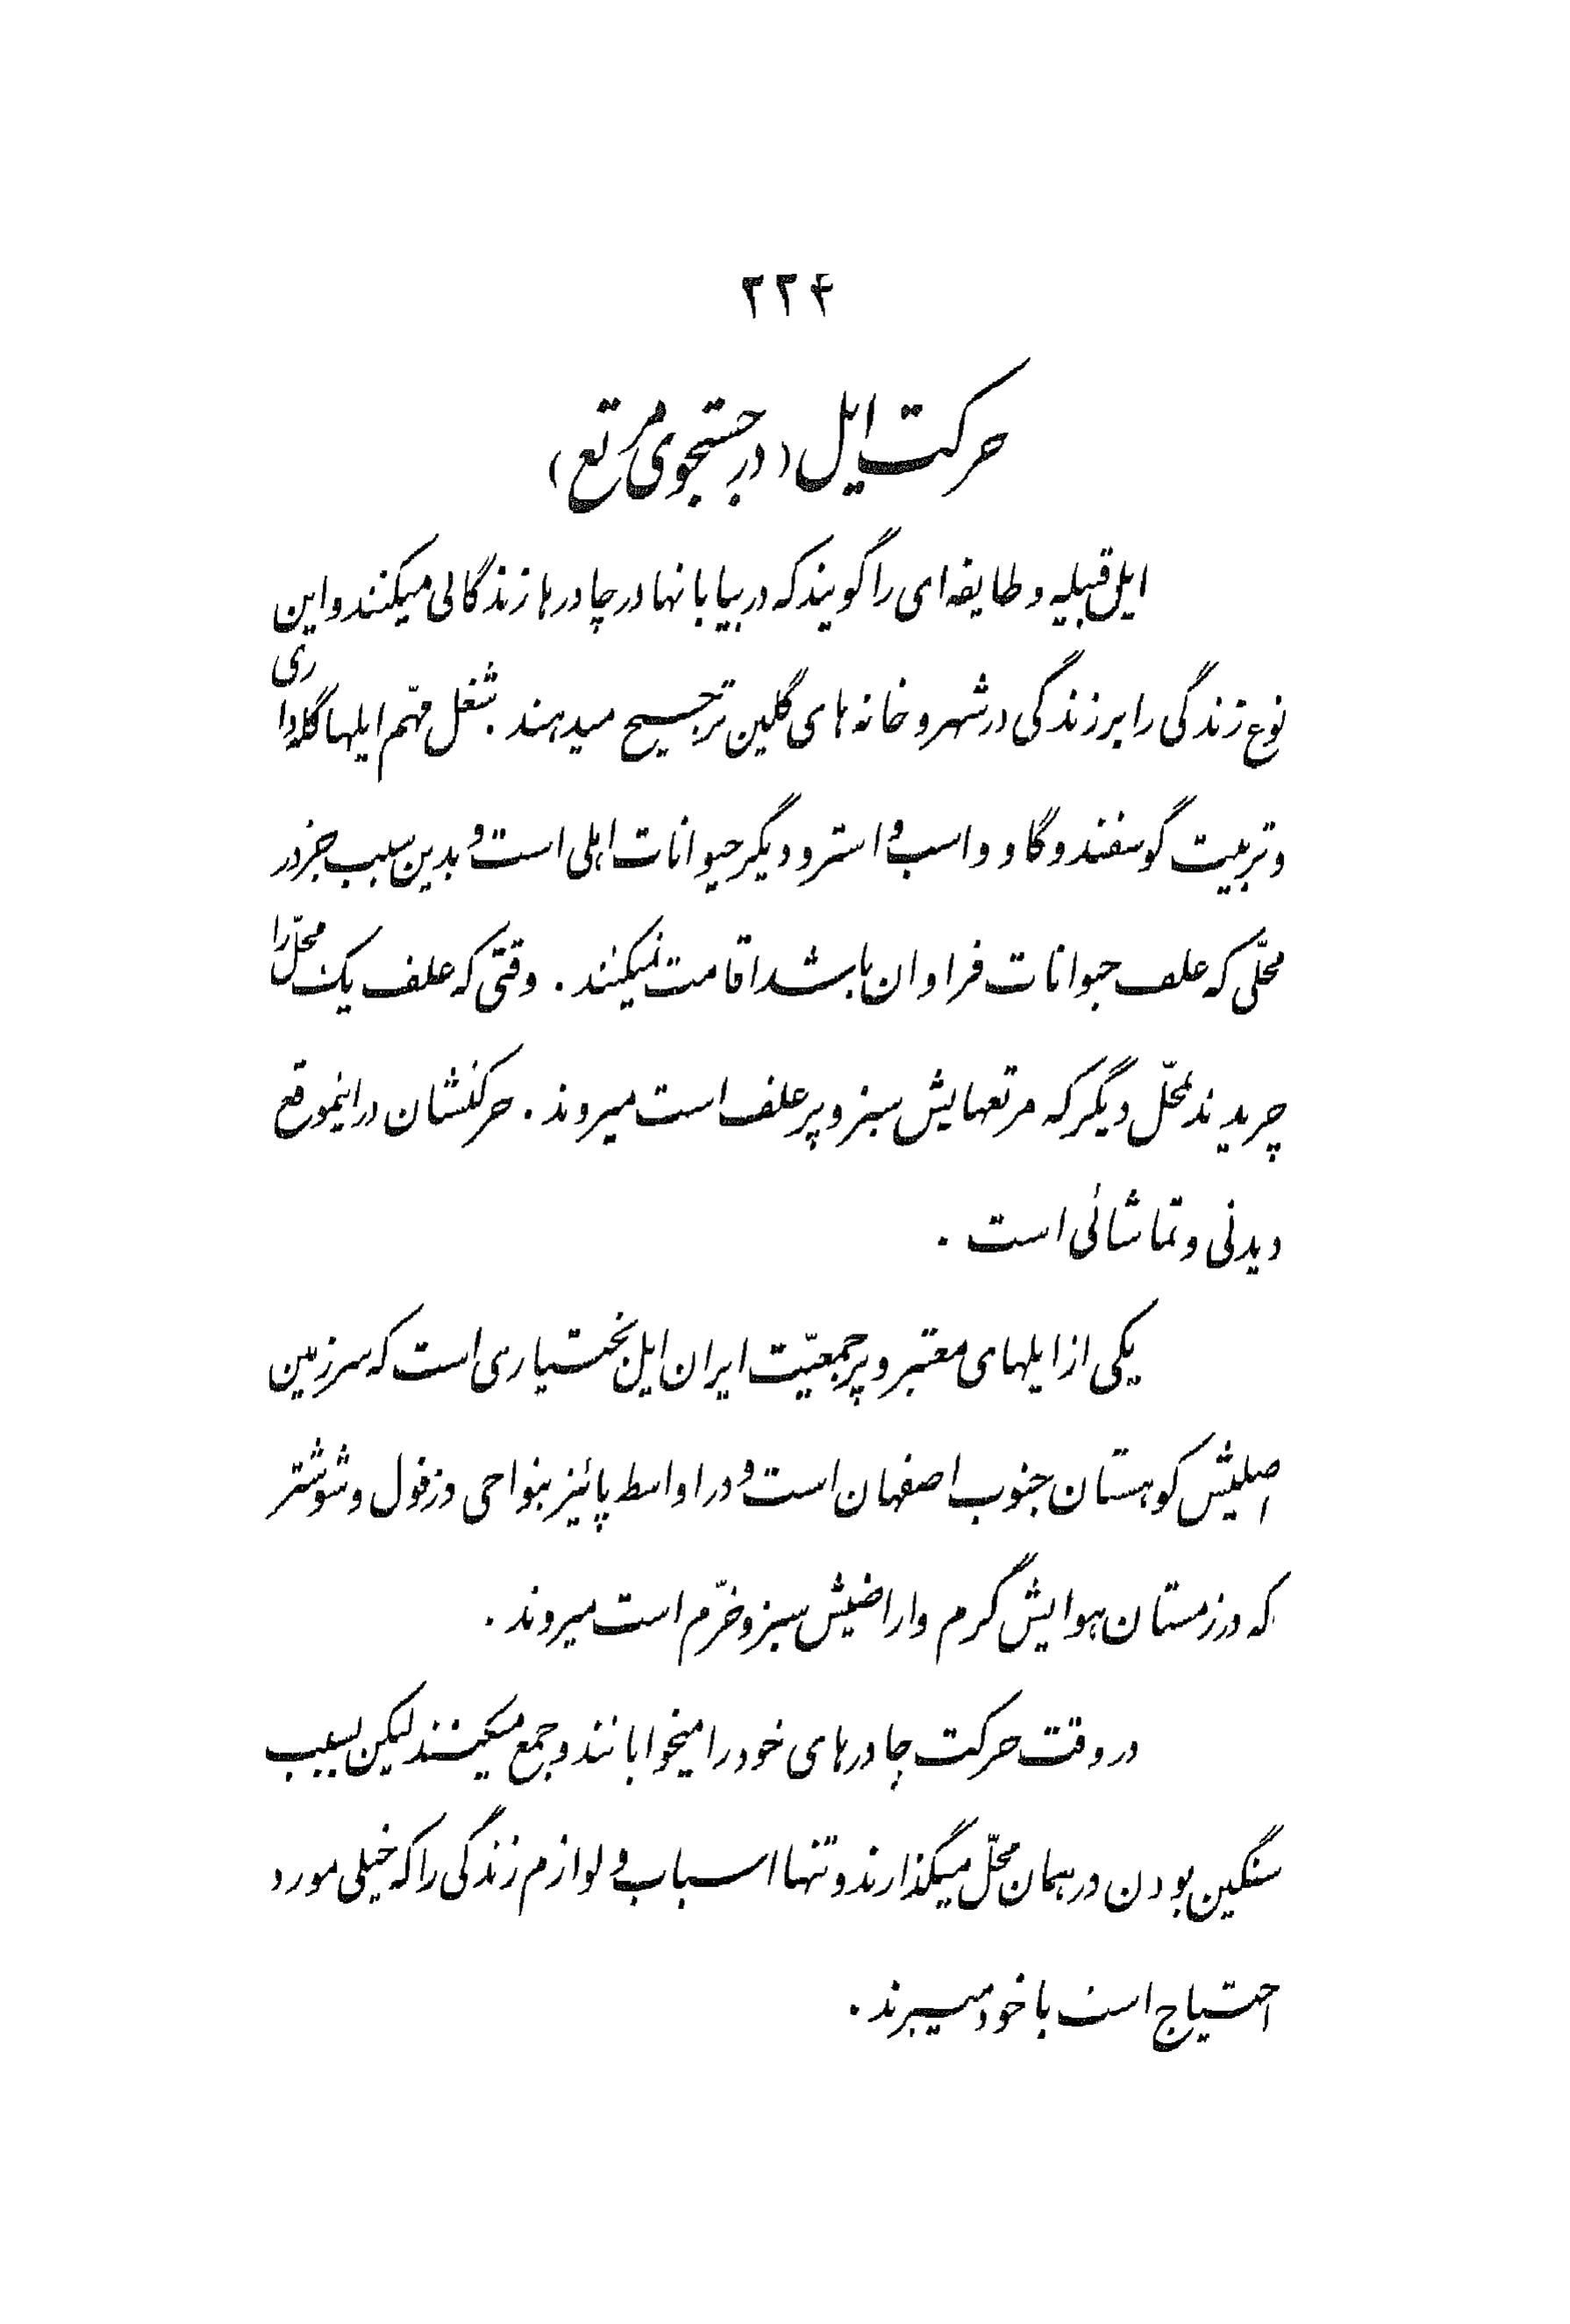 ۲۲۴
حرکت ایل (در جستجوی مرتع)
ایل قبیله و طایفه‌ای را گویند که در بیابانها در چادرها زندگانی میکنند و این
نوع زندگی را بر زندگی در شهر و خانه‌های گلین ترجیح میدهند. شغل مهمّ ایلها گله‌داری
و تربیت گوسفند و گاو و اسب و استر و دیگر حیوانات اهلی است و بدین سبب جز در
محلّی که علف حیوانات فراوان باشد اقامت نمیکنند. وقتی که علف یک محلّ را
چریدند بمحلّ دیگر که مرتعهایش سبز و پر علف است میروند. حرکتشان در اینموقع
دیدنی و تماشائی است.
یکی از ایلهای معتبر و پرجمعیّت ایران ایل بختیاری است که سرزمین
اصلیش کوهستان جنوب اصفهان است و در اواسط پائیز بنواحی دزفول و شوشتر
که در زمستان هوایش گرم و اراضیش سبز و خرّم است میروند.
در وقت حرکت چادرهای خود را میخوابانند و جمع میکنند لیکن بسبب
سنگین بودن در همان محلّ میگذارند و تنها اسباب و لوازم زندگی را که خیلی مورد
احتیاج است با خود میبرند.